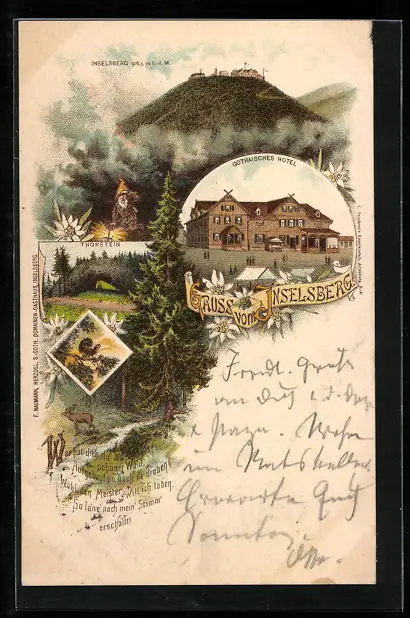 INSELSBERG 916,5 m. ü. d. M.
GOTHAISCHES HOTEL
THORSTEIN
GRUSS
vom INSELSBERG.
F. NAUMANN, HERZOGL. S.-GOTH. DOMAINEN-GASTHAUS, INSELSBERG.
Wer hat dich, du
schöner Wald
Auf so hoch da droben?
Wohl den Meister will ich loben,
So lang' noch mein' Stimm'
erschallt!
Gruß
an dich
Wohne
im Ratskeller
Erwarte Euch
Sonntag
Otto.